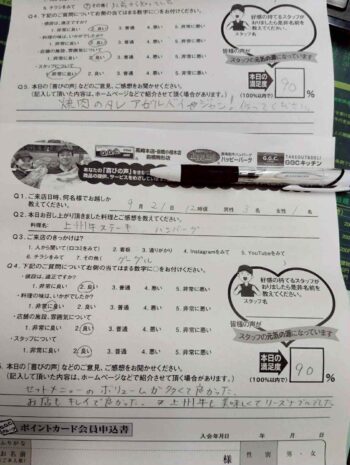 6. チラシをみて 7. その他(
Q4. 下記のご質問についてお側の当てはまる数字に○をお付けください。
・接客は、満足ですか?
1. 非常に良い 2. 良い 3. 普通 4. 悪い 5. 非常に悪い
・料理の味は、いかがでしたか?
1. 非常に良い 2. 良い 3. 普通 4. 悪い 5. 非常に悪い
・店舗の施設、雰囲気について
1. 非常に良い 2. 良い 3. 普通 4. 悪い 5. 非常に悪い
・スタッフについて
1. 非常に良い 2. 良い 3. 普通 4. 悪い 5. 非常に悪い
好感の持てるスタッフ
がおりましたら是非名前
を教えてください。
スタッフ名
皆様の声が
スタッフの元気の源になっています
Q5. 本日の「喜びの声」など、ご感想をお聞かせください。
(記入して頂いた内容は、ホームページなどで紹介させて頂く場合があります。)
本日の
満足度
(100%以内で)
90
%
焼肉のタレ
ハッピーバーグ
G.G.C.
TAKEOUT&DELI
GGCキッチン
あなたの「喜びの声」が
Q1. ご来店日時、何名様でお越しか
教えてください。
9月21日 12時頃 男性 3名 女性 1名
Q2. 本日お召し上がり頂きました料理とご感想を教えてください。
料理名: 上州牛ステーキ ハンバーグ
Q3. ご来店のきっかけは?
1. 人から聞いて(口コミをみて) 2. 看板 3. 通りがかり 4. Instagramをみて 5. YouTubeをみて
6. チラシをみて 7. その他( グーグル
Q4. 下記のご質問についてお側の当てはまる数字に○をお付けください。
・接客は、満足ですか?
1. 非常に良い 2. 良い 3. 普通 4. 悪い 5. 非常に悪い
・料理の味は、いかがでしたか?
1. 非常に良い 2. 良い 3. 普通 4. 悪い 5. 非常に悪い
・店舗の施設、雰囲気について
1. 非常に良い 2. 良い 3. 普通 4. 悪い 5. 非常に悪い
・スタッフについて
1. 非常に良い 2. 良い 3. 普通 4. 悪い 5. 非常に悪い
好感の持てるスタッフ
がおりましたら是非名前
を教えてください。
スタッフ名
皆様の声が
スタッフの元気の源になっています
5. 本日の「喜びの声」など、ご感想をお聞かせください。
(記入して頂いた内容は、ホームページなどで紹介させて頂く場合があります。)
本日の
満足度
(100%以内で)
90
%
セットメニューのボリュームが多くて良かった。
お店もキレイで良かった。上州牛も美味しくてリーズナブルでした。
ポイントカード会員申込書
入会年月日 年 月 日
ふりがな
お名前
様
性別
男・女